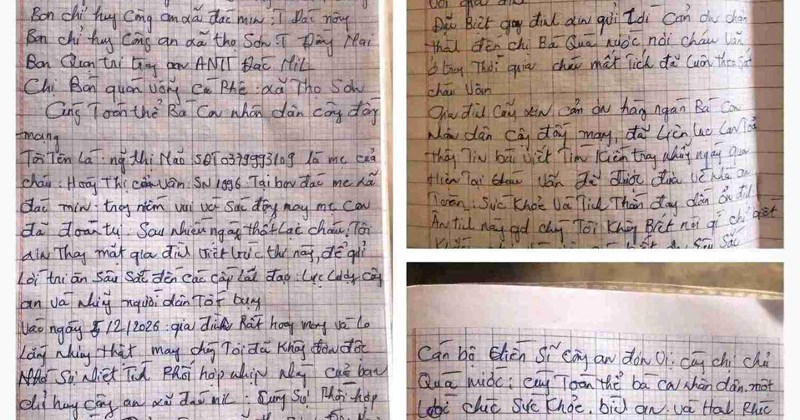 Ban chỉ huy Công an xã đăc min: T Đăc nông
Ban chỉ huy Công an xã thọ Sơn. T Đồng Nai
Ban Quản trị trang an ANTT Đăc Mil
Chị Bán quán võng Cà Phê: xã Thọ Sơn
Cùng Toàn thể Bà Con nhân dân cộng đồng
mạng
Tôi Tên Là: ng thị Mão SĐT 0379993109 là mẹ của
cháu: Hoàng Thị Cẩm Vân. SN 1996 Tại bon đăc me xã
đăc min: trong niềm vui và Xúc động may mẹ con
đã đoàn tụ. Sau nhiều ngày thất Lạc cháu. Tôi
xin Thay mặt gia đình viết bức thư này, để gửi
Lời tri ân Sâu Sắc đến các cấp Lãt đạo: Lực Lượng Công
an và những người dân Tốt bụng
vào ngày 12/2026: gia đình Rất hoang mang và Lo
Lắng nhưng thật may chúng Tôi đã Không đơn độc
Nhờ Sự nhiệt Tình Phối hợp nhịp nhàng của ban
chỉ huy công an xã đăc mil: Cùng Sự Phối hợp
Đặc Biệt gay đình xin gửi Lời Cản ơn chân
thật đến chị Bá Quá nước nơi cháu Vân
cháu Vân
Gia đình Cũng xin cản ơn hàng ngàn Bà Con
Nhân dân Cộng đồng mạng, đã Liên Lạc Lan Toả
thông Tin bài viết Tìm Kiếm trong những ngày qua
Hiện Tại cháu Vân đã được đưa về Nhà an
Toàn: Sức Khỏe Và Tinh Thần đang dần ổn định
Ân tình này gđ chúng Tôi Không Biết nói gì chỉ
Cán bộ chiến Sĩ công an đơn Vị: cùng chị chủ
Quá nước: cùng Toàn thể bà con nhân dân. một
Lời chúc Sức Khỏe, bình an và Hạnh Phúc